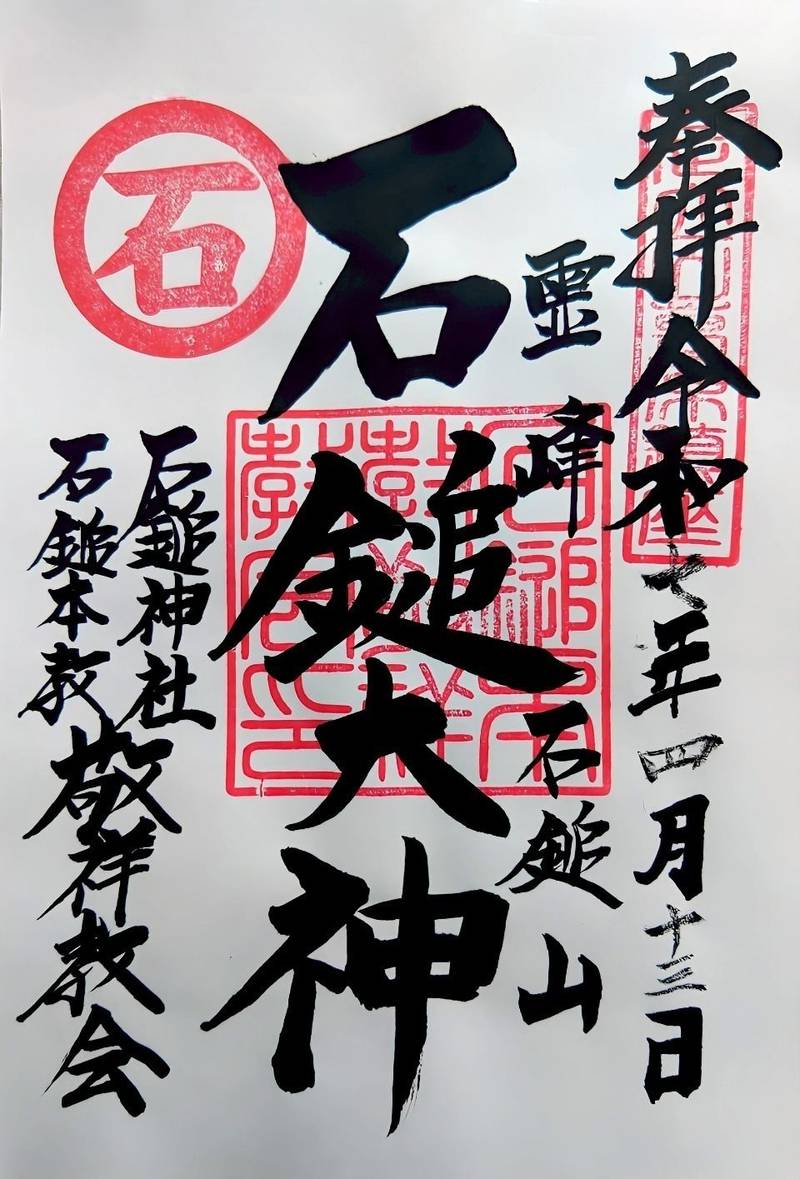 奉拝令和七年四月十三日
霊峰石鎚山
石鎚大神
石鎚神社
石鎚本教
敬祥教会
石